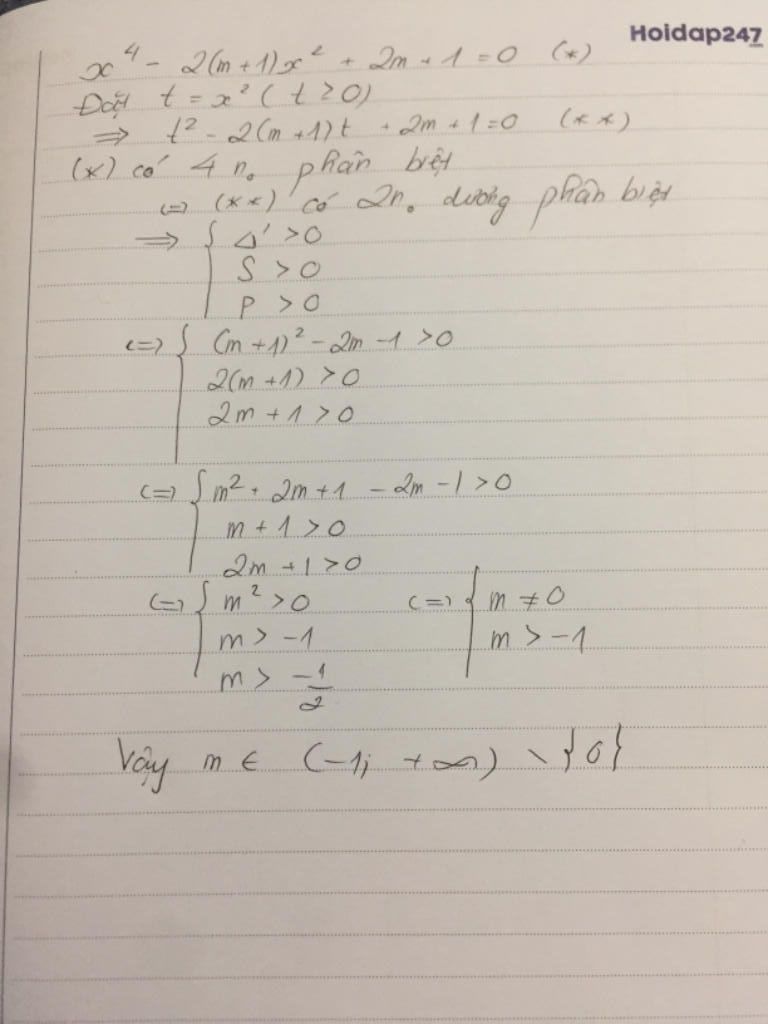 Hoidap247
x⁴ - 2(m+1)x² + 2m + 1 = 0 (*)
Đặt t = x² (t ≥ 0)
⇒ t² - 2(m+1)t + 2m + 1 = 0 (**)
(*) có 4 n₀ phân biệt
⇔ (**) có 2n₀ dương phân biệt
⇒ { Δ' > 0
S > 0
P > 0
⇔ { (m+1)² - 2m - 1 > 0
2(m+1) > 0
2m + 1 > 0
⇔ { m² + 2m + 1 - 2m - 1 > 0
m + 1 > 0
2m + 1 > 0
⇔ { m² > 0 ⇔ { m ≠ 0
m > -1 m > -1
m > -1/2
Vậy m ∈ (-1; +∞) \ {0}